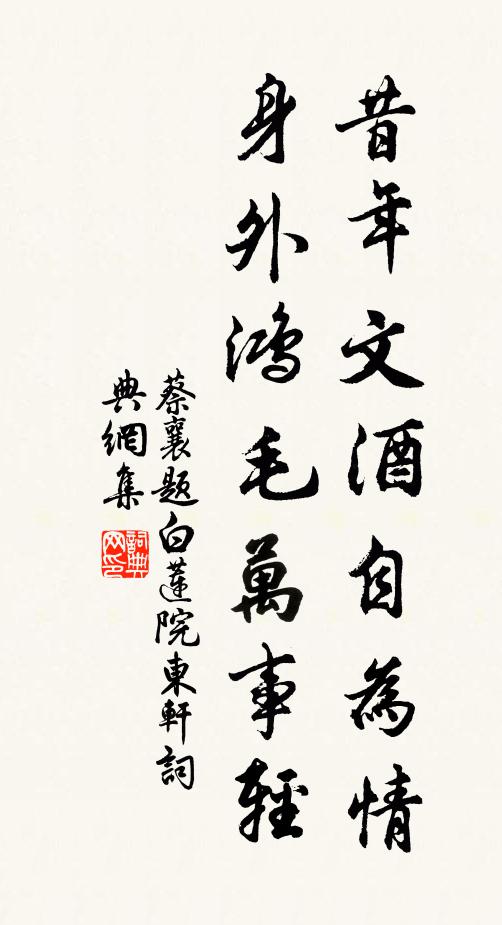 昔年文酒自為情
身外鴻毛萬事輕
蔡襄題白蓮院東軒詞
典網集
詞典网印